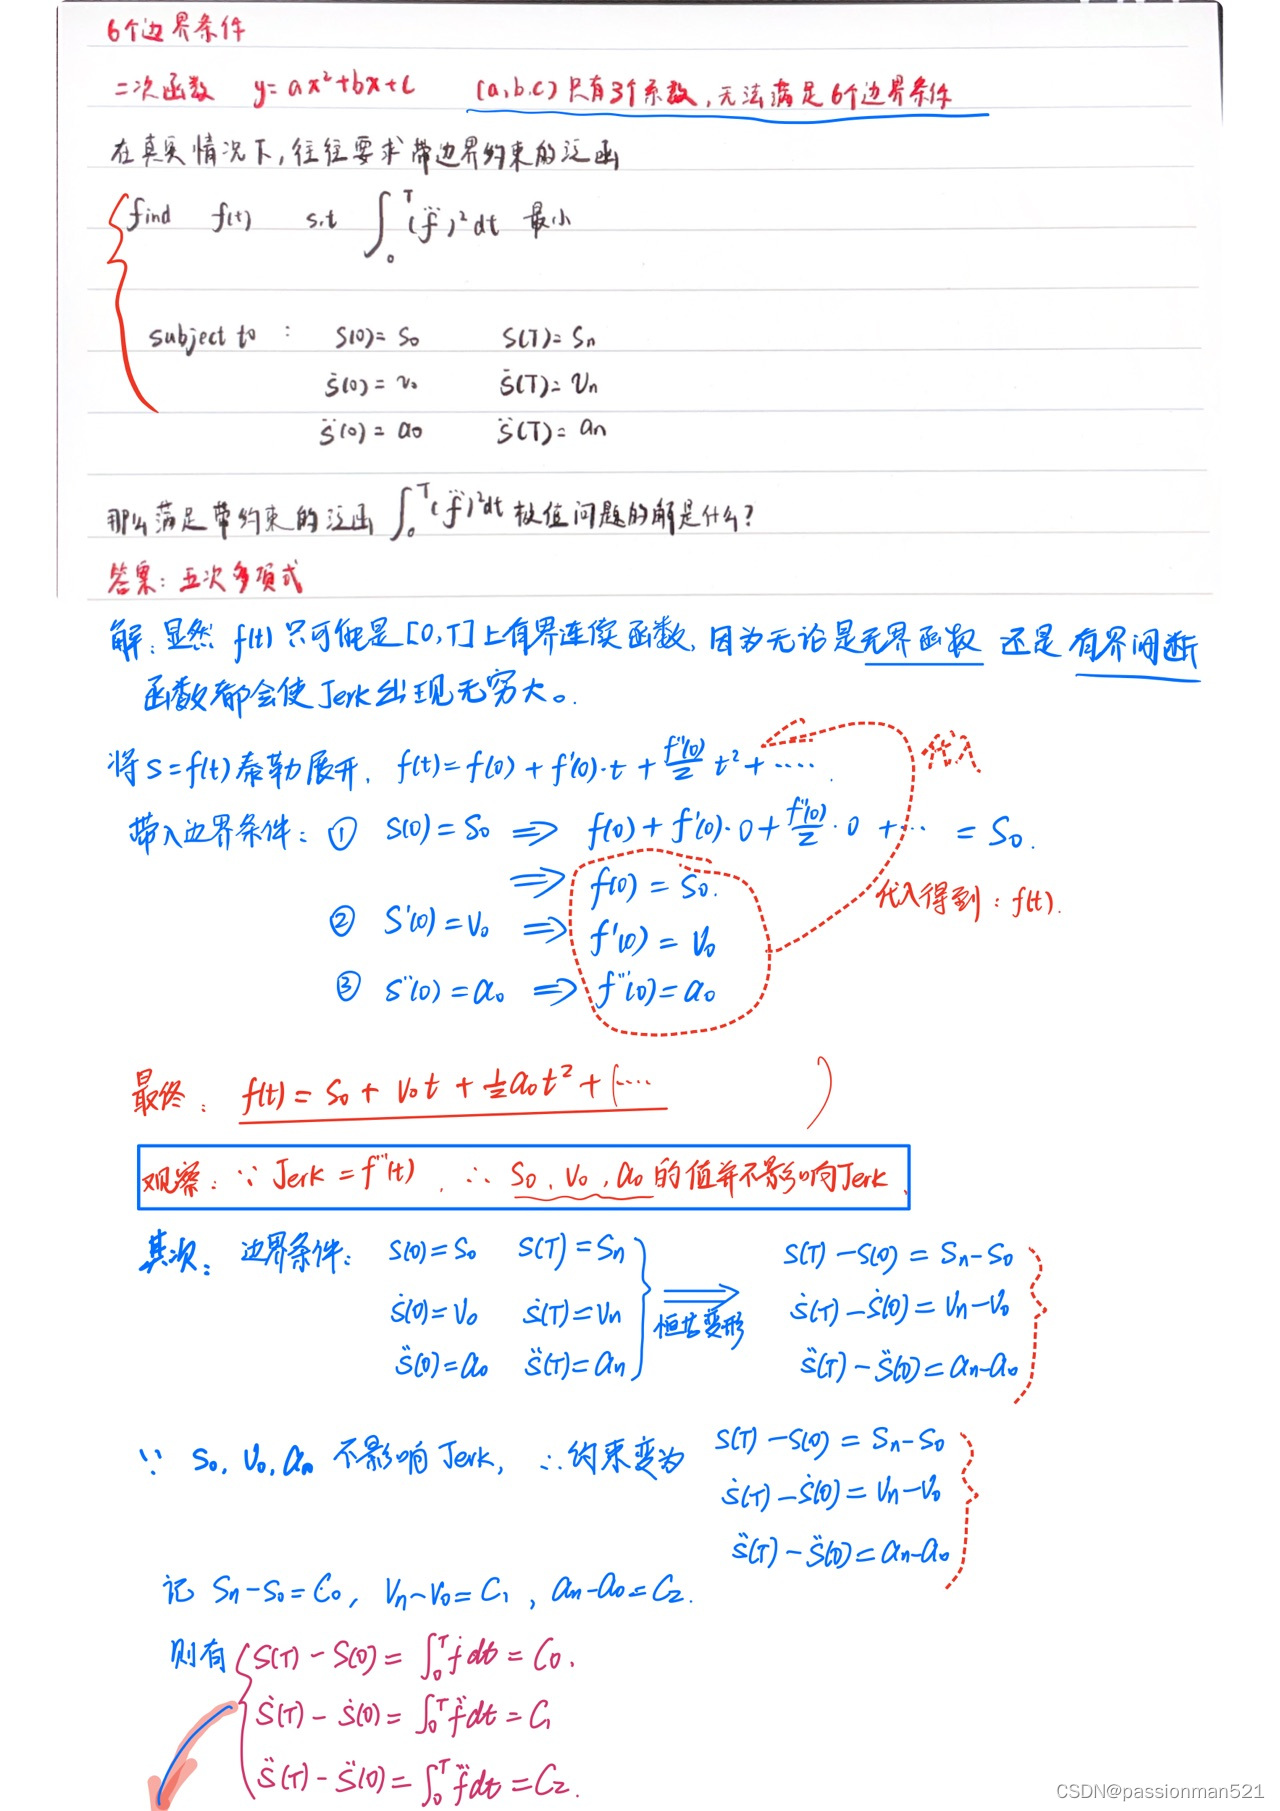 6个边界条件
二次函数 y=ax²+bx+c (a,b,c)只有3个系数,无法满足6个边界条件
在真实情况下,往往要求带边界约束的泛函
find f(t) s.t ∫₀ᵀ(f⃛)²dt 最小
subject to : S(0)=S₀ S(T)=Sn
ṡ(0)=v₀ ṡ(T)=Vn
s̈(0)=a₀ s̈(T)=an
那么满足带约束的泛函 ∫₀ᵀ(f⃛)²dt 极值问题的解是什么?
答案:五次多项式
解:显然 f(t)只可能是[0,T]上有界连续函数,因为无论是无界函数 还是 有界间断
函数都会使Jerk出现无穷大。
将S=f(t)泰勒展开, f(t)=f(0)+f'(0)·t+f''(0)/2 t²+····
代入
带入边界条件: ① S(0)=S₀ ⇒ f(0)+f'(0)·0+f''(0)/2·0+··· =S₀.
⇒ f(0)=S₀.
代入得到:f(t).
② S'(0)=V₀ ⇒ f'(0)=V₀
③ S''(0)=a₀ ⇒ f'''(0)=a₀
最终: f(t)=S₀+V₀t+½a₀t²+(···· )
观察:∵Jerk=f'''(t). ∴ S₀、V₀、a₀的值并不影响Jerk.
其次: 边界条件: S(0)=S₀ S(T)=Sn S(T)-S(0)=Sn-S₀
ṡ(0)=V₀ ṡ(T)=Vn ⇒ 恒等变形 ṡ(T)-ṡ(0)=Vn-V₀
s̈(0)=a₀ s̈(T)=an s̈(T)-s̈(0)=an-a₀
∵ S₀,V₀,an 不影响Jerk, ∴约束变为 S(T)-S(0)=Sn-S₀
ṡ(T)-ṡ(0)=Vn-V₀
s̈(T)-s̈(0)=an-a₀
记 Sn-S₀=C₀, Vn-V₀=C₁, an-a₀=C₂.
则有 S(T)-S(0)=∫₀ᵀḟdt=C₀.
ṡ(T)-ṡ(0)=∫₀ᵀf̈dt=C₁
s̈(T)-s̈(0)=∫₀ᵀf⃛dt=C₂.
CSDN@passionman521